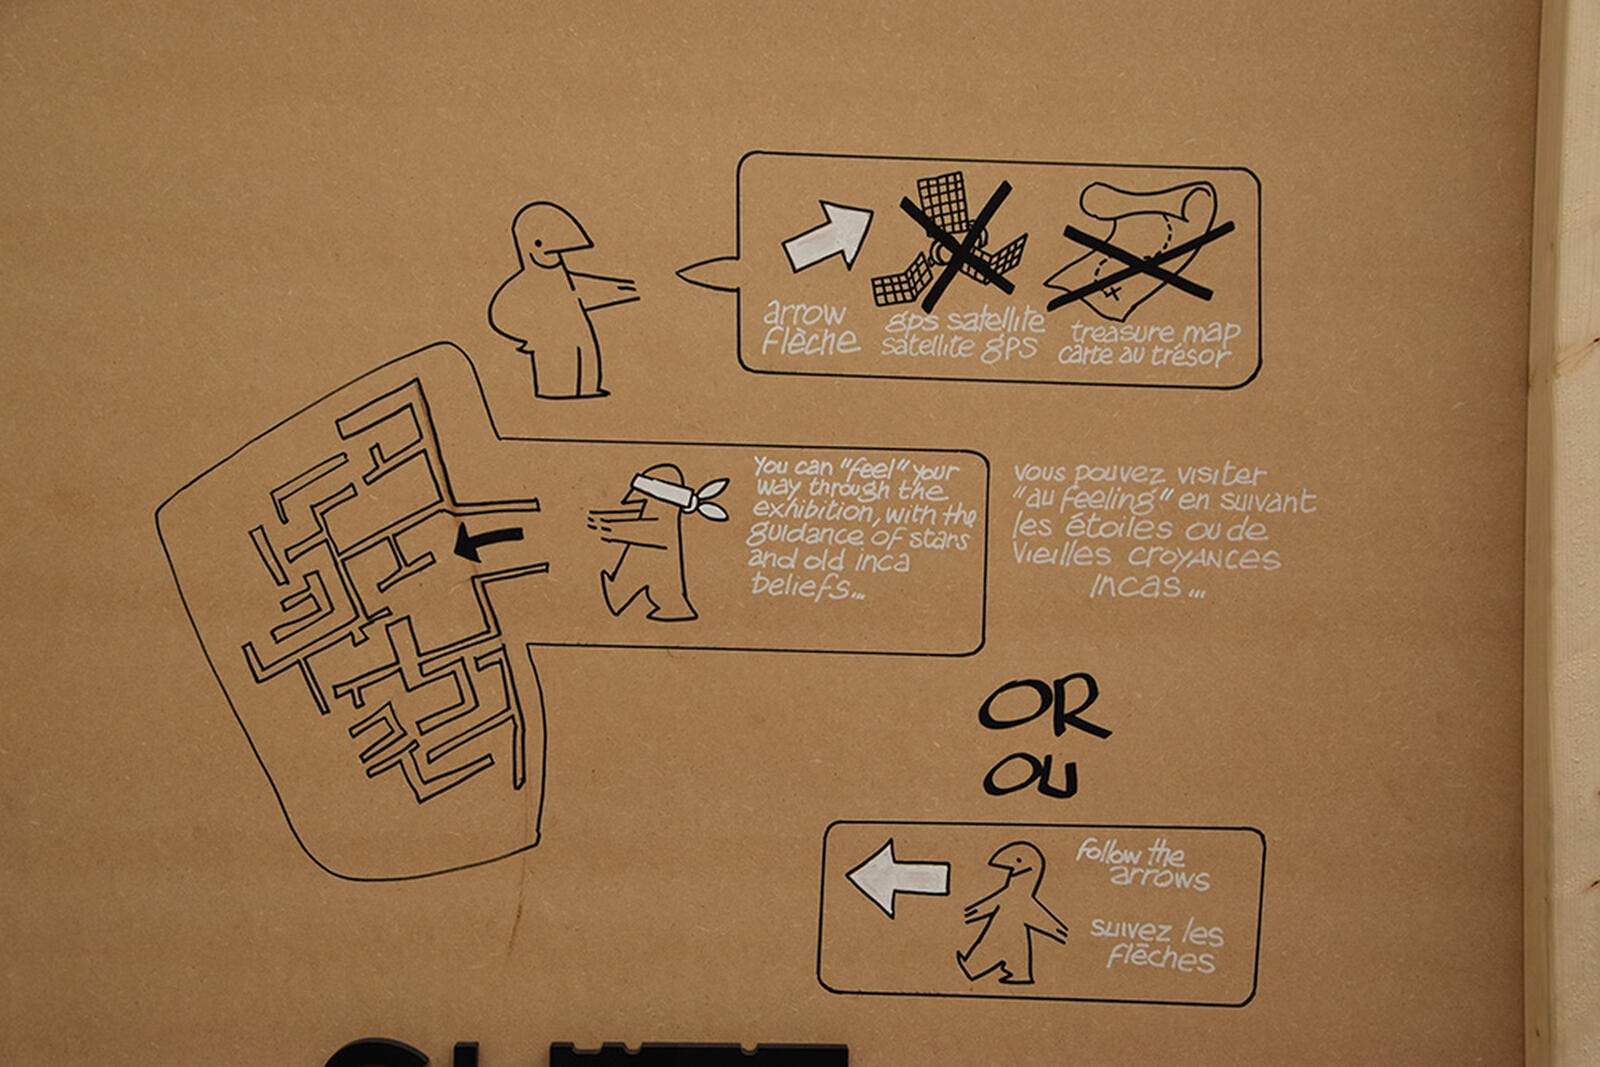 arrow
flèche
gps satellite
satellite GPS
treasure map
carte au trésor
You can "feel" your
way through the
exhibition, with the
guidance of stars
and old inca
beliefs...
vous pouvez visiter
"au feeling" en suivant
les étoiles ou de
vieilles croyances
incas...
OR
OU
Follow the
arrows
suivez les
flèches